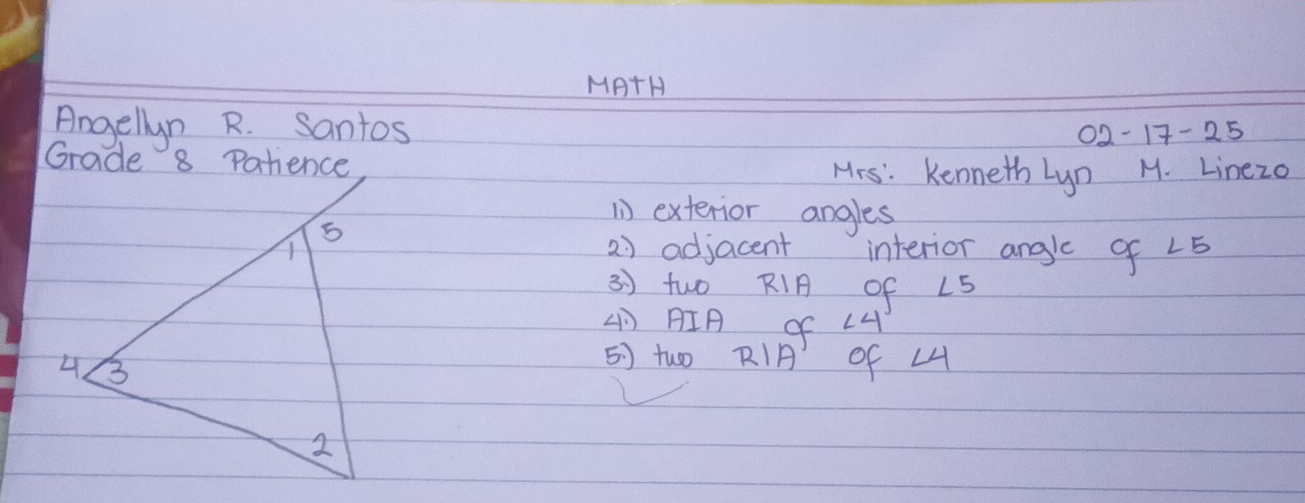 MATH
Angellyn R. Santos
02-17-25
Grade 8 Patience
Mrs. Kenneth Lyn M. Linezo
1.) exterior angles
5
1
2.) adjacent interior angle of ∠5
3.) two RIA of ∠5
4.) AIA of ∠4
5.) two RIA of ∠4
4
3
2